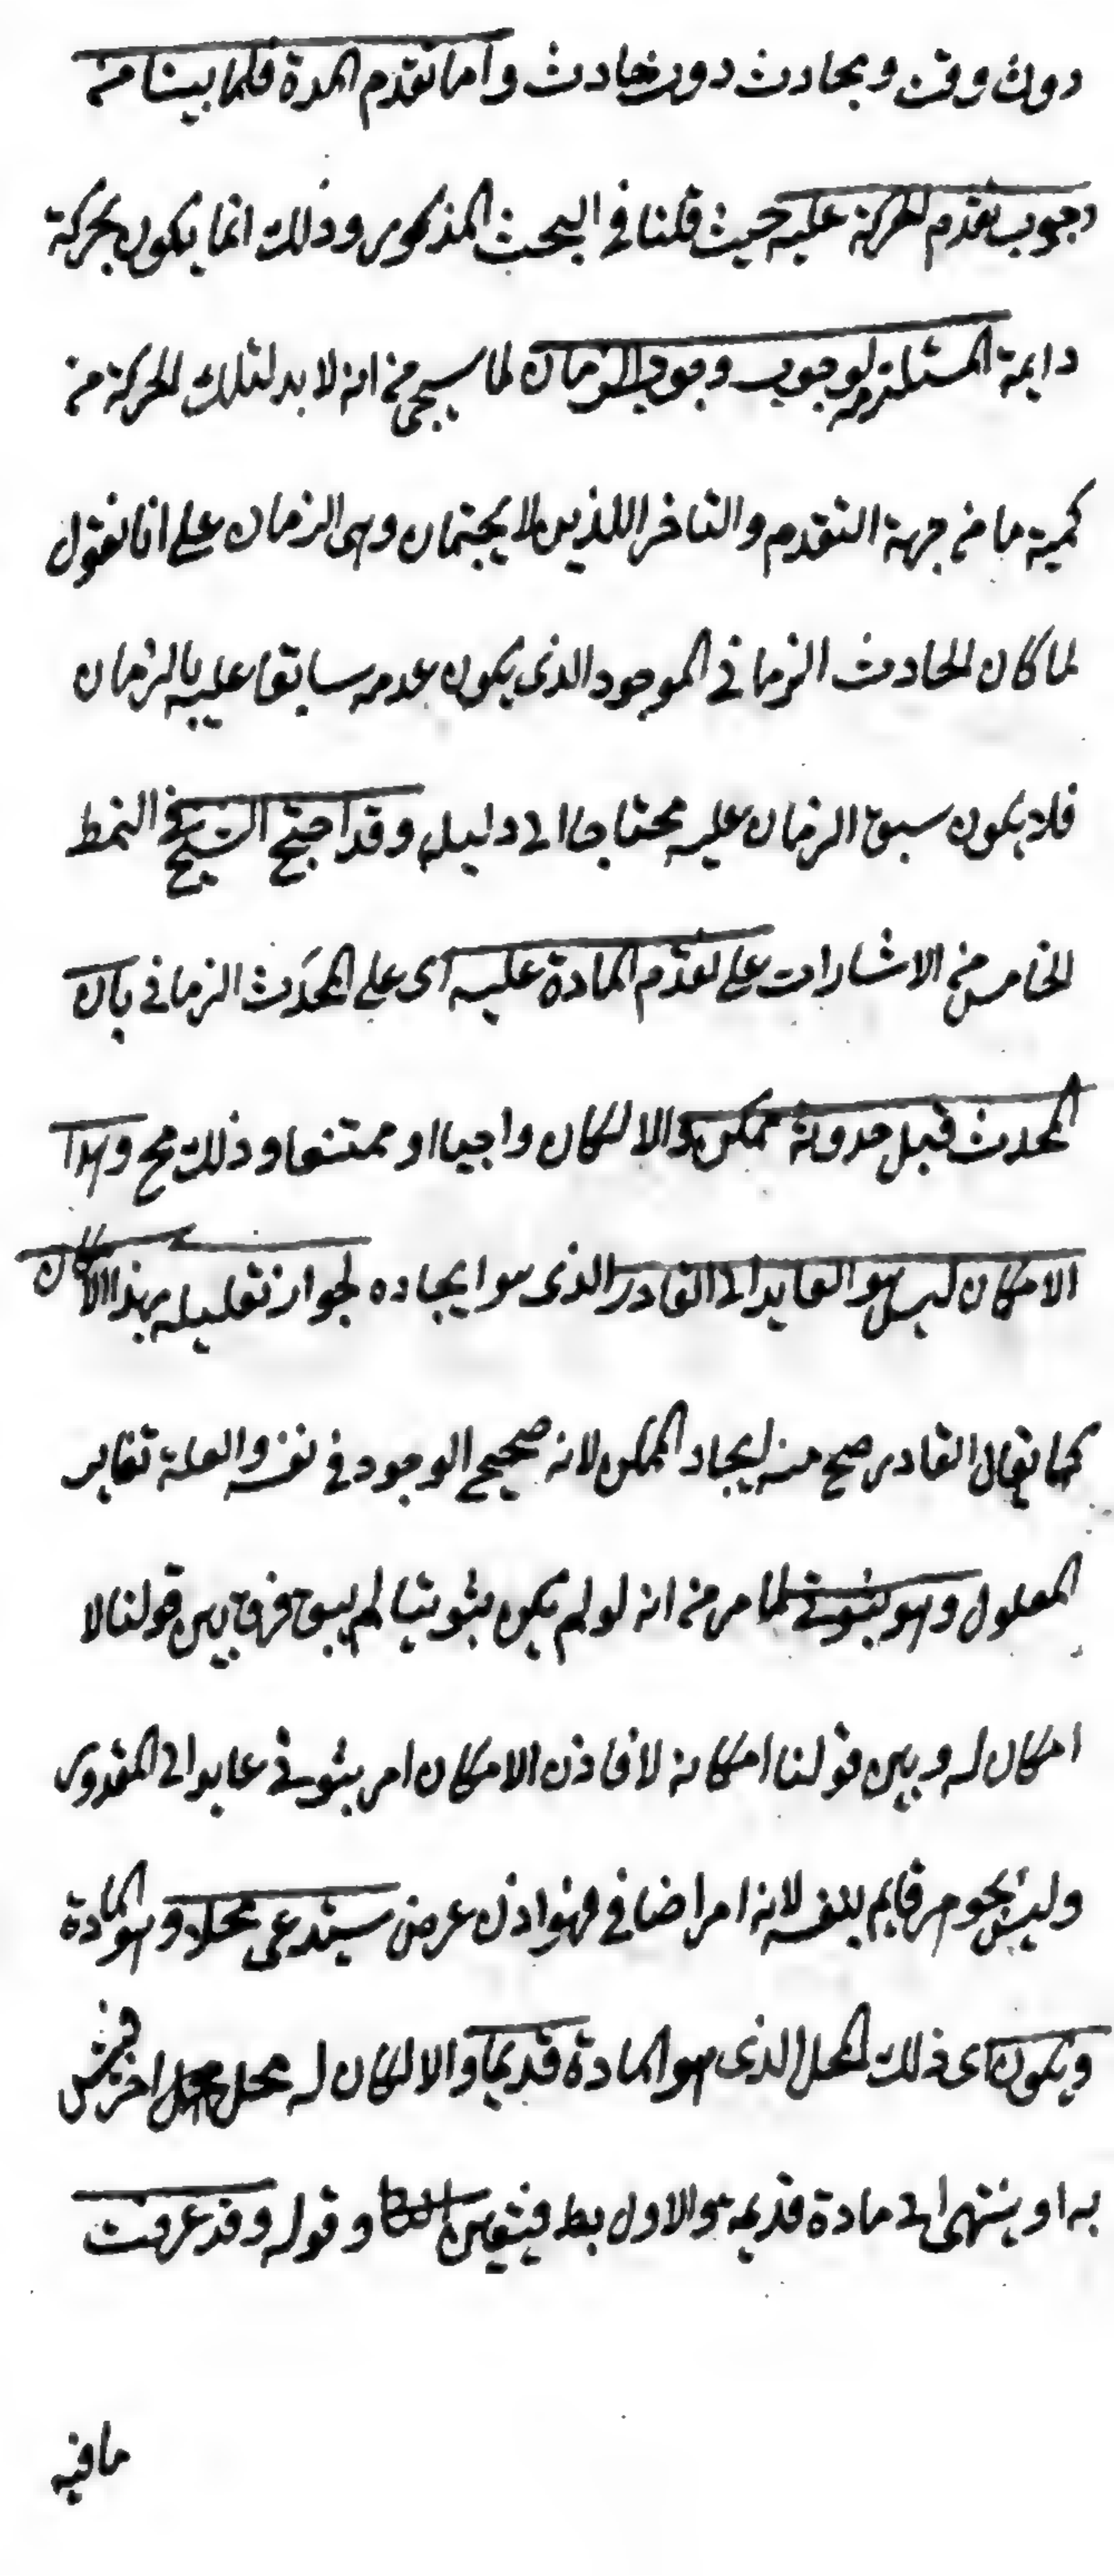 دون وقت وبحادث دون حادث واما تقدم المدة فلما بينا من
وجوب تقدم الحركة عليه حيث قلنا في البحث المذكور وذلك انما يكون بحركة
دايمة المستلزمه لوجوب وجود الزمان لما سيجئ من انه لا بد لتلك الحركة من
كمية ما من جهة التقدم والتاخر اللذين لا يجتمعان وهى الزمان على انا نقول
لما كان الحادث الزمانى الموجود الذى يكون عدمه سابقا عليه بالزمان
فلا يكون سبق الزمان عليه محتاجا الى دليل وقد احتج الشيخ في النمط
الخامس من الاشارات على تقدم المادة عليه اى على المحدَث الزمانى بان
المحدث قبل حدوثه ممكن والا لكان واجبا او ممتنعا وذلك مح وهذا
الامكان ليس هو العايد الى القادر الذى هو ايجاده لجواز تعليله بهذا الامكان
كما يقال القادر صح منه ايجاد الممكن لانه صحيح الوجود في نفسه والعلة تغاير
المعلول وهو ثبوتى لما مر من انه لو لم يكن ثبوتيا لم يبق فرق بين قولنا لا
امكان له وبين قولنا امكانه لا فاذن الامكان امر ثبوتى عايد الى المقدور
وليس بجوهر قايم بنفسه لانه امر اضافى فهو اذن عرض يستدعى محلا وهو المادة
ويكون اى ذلك المحل الذى هو المادة قديما والا لكان له محل اخر فيتس
به او ينتهى الى مادة قديمه والاول بط فيتعين وقوله وقد عرفت
ما فيه